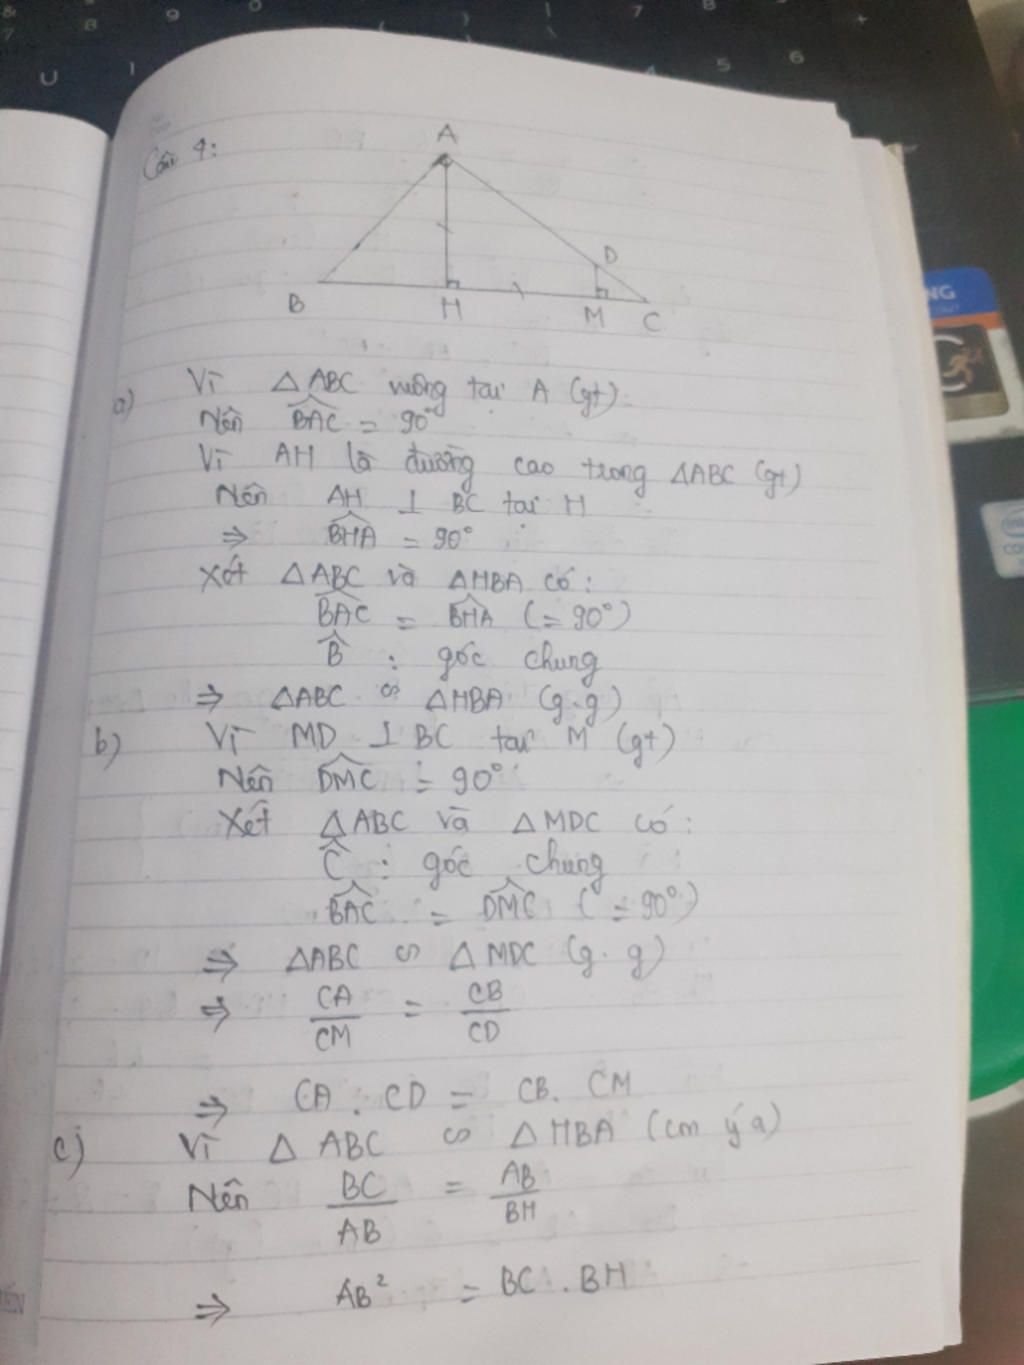 Câu 4:
A
D
B
H
M
C
a) Vì △ABC vuông tại A (gt)
Nên BAC = 90°
Vì AH là đường cao trong △ABC (gt)
Nên AH ⊥ BC tại H
⇒ BHA = 90°
Xét △ABC và △HBA có:
BAC = BHA (= 90°)
B̂ : góc chung
⇒ △ABC ∽ △HBA (g.g)
b) Vì MD ⊥ BC tại M (gt)
Nên DMC = 90°
Xét △ABC và △MDC có:
Ĉ : góc chung
BAC = DMC (= 90°)
⇒ △ABC ∽ △MDC (g.g)
⇒ CA/CM = CB/CD
⇒ CA . CD = CB . CM
c) Vì △ABC ∽ △HBA (cm ý a)
Nên BC/AB = AB/BH
⇒ AB² = BC . BH